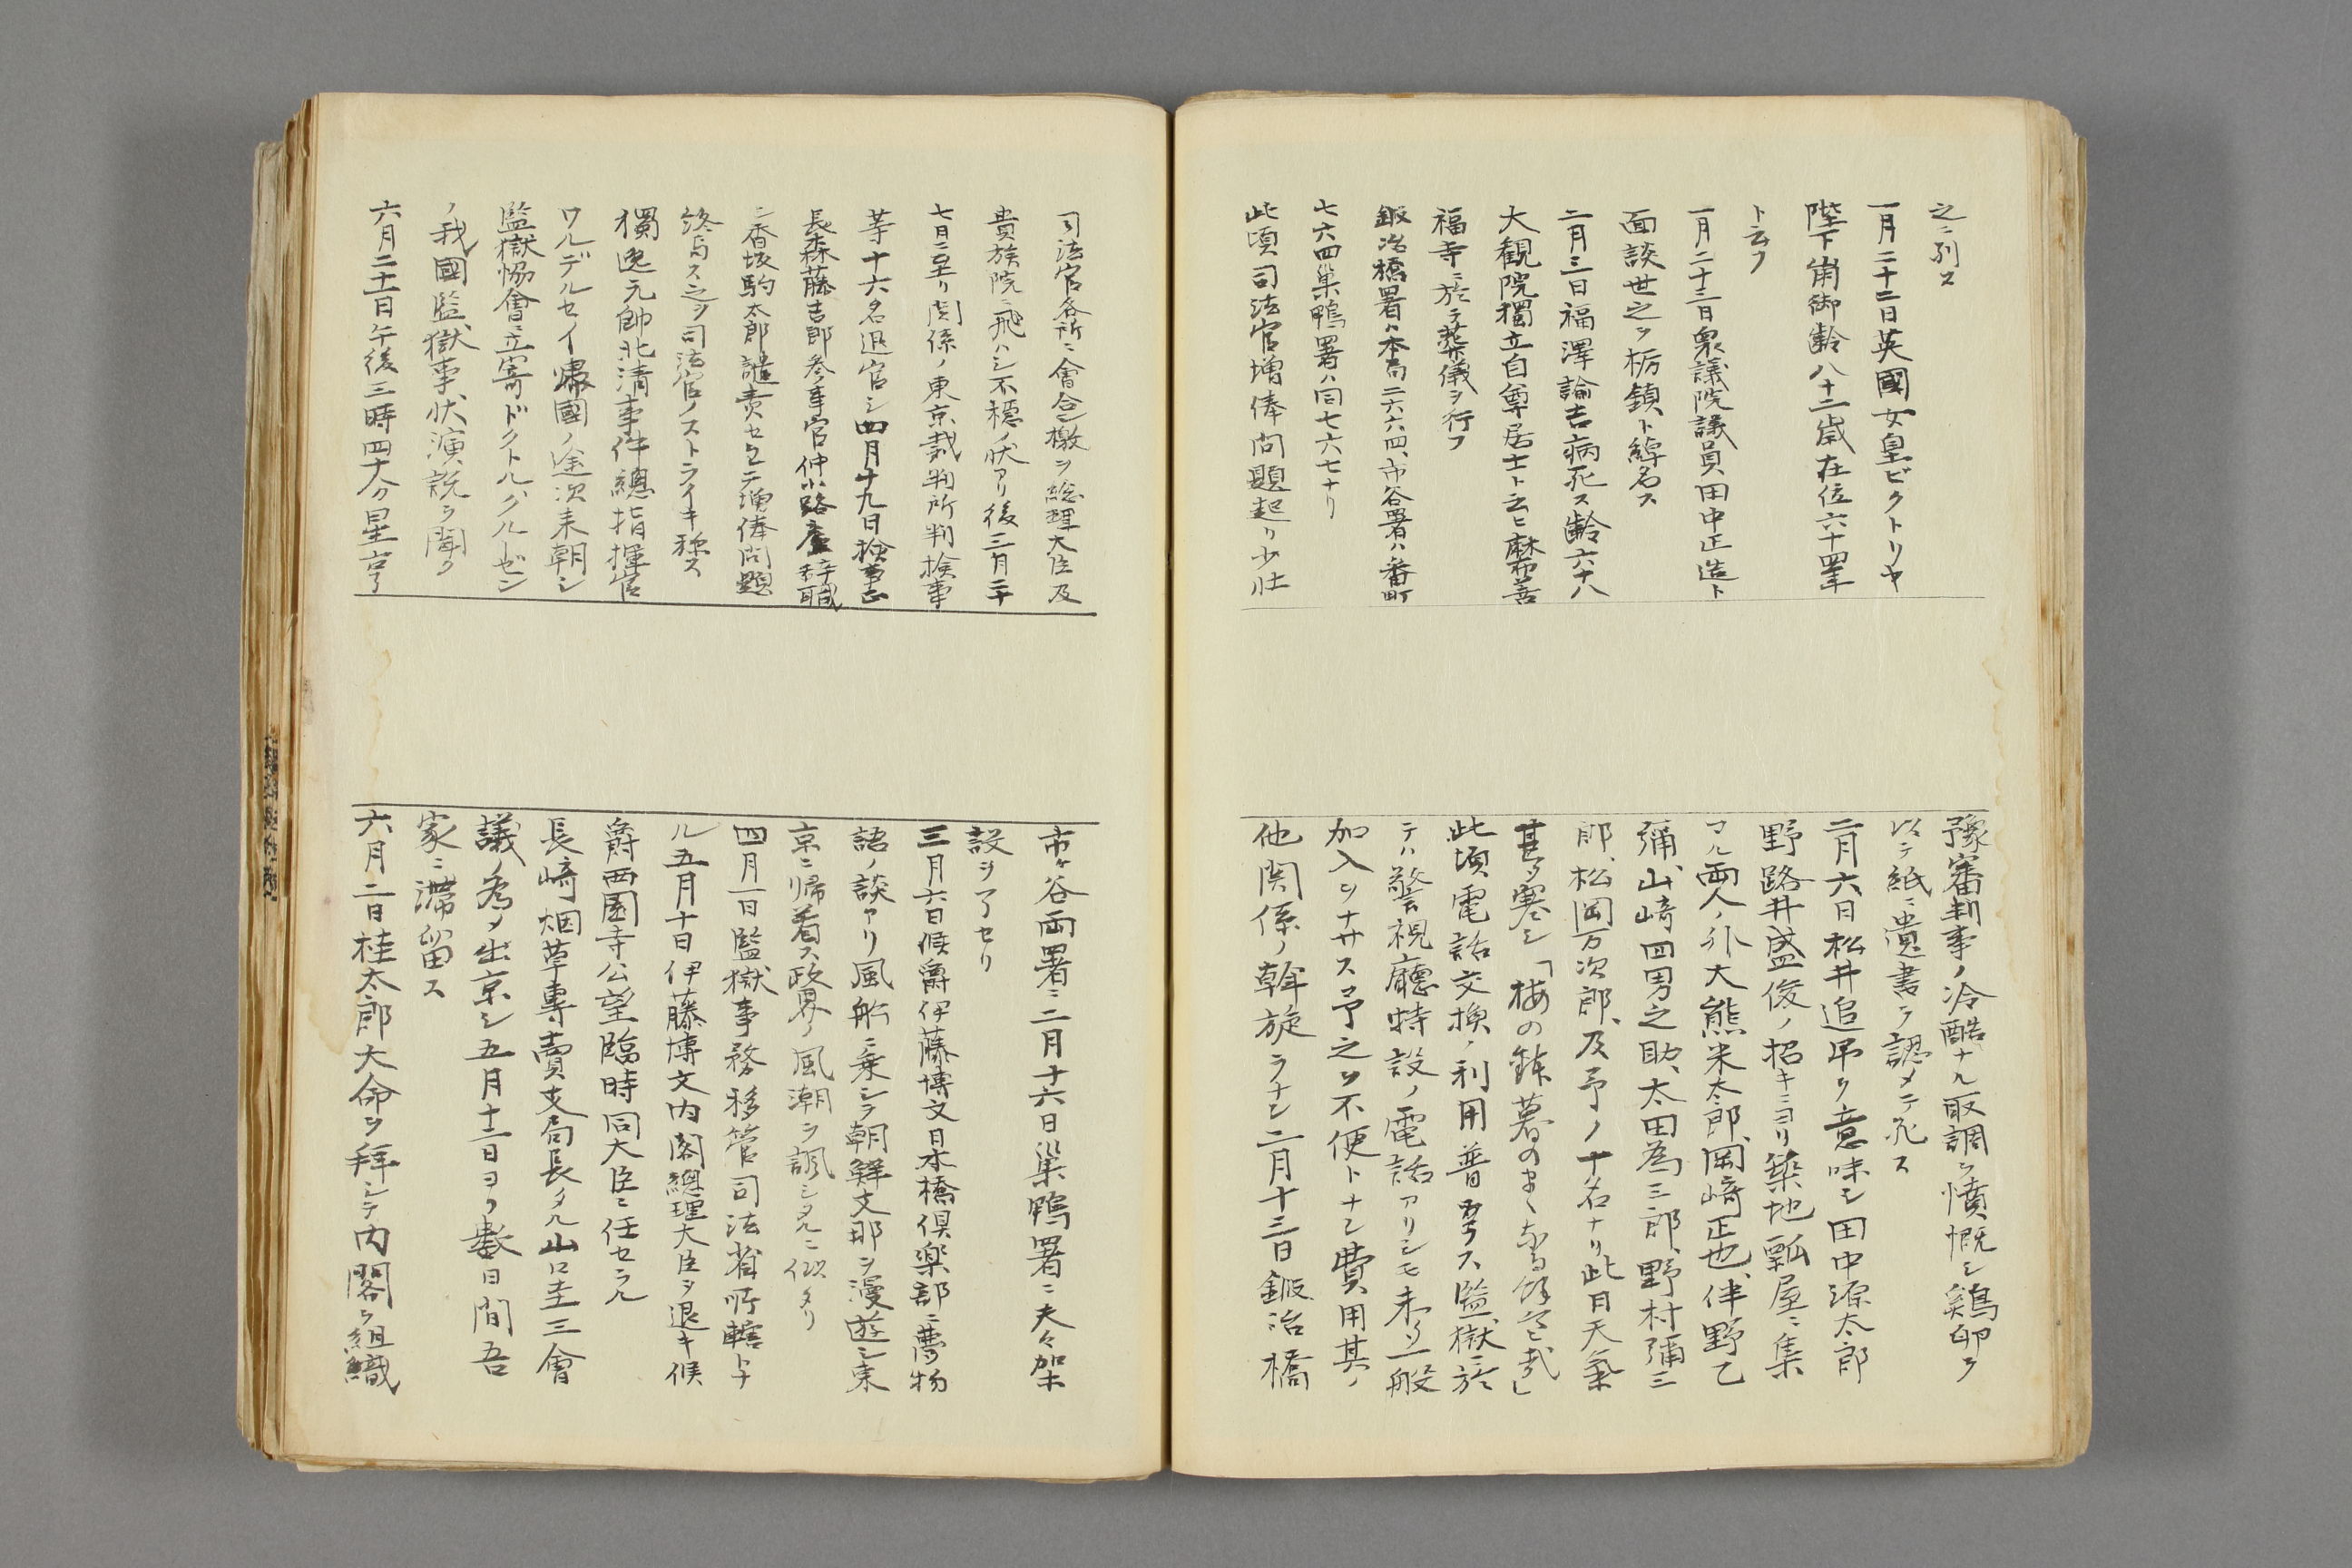 之ニ列ス
一月二十二日英國女皇ビクトリヤ
陛下崩御齢八十二歳在位六十四年
ト云フ
一月二十三日衆議院議員田中正造ト
面談世之ヲ栃鎮ト綽名ス
二月三日福澤諭吉病死ス齢六十八
大観院獨立自尊居士ト云ヒ麻布善
福寺ニ於テ葬儀ヲ行フ
鍛冶橋署ハ本局二六六四、市谷署ハ番町
七六四巣鴨署ハ同七六七ナリ
此頃司法官増俸問題起リ少壮
豫審判事ノ冷酷ナル取調ヲ憤慨シ鶏卵ヲ
以テ紙ニ遺書ヲ認メテ死ス
二月六日松井追弔ノ意味シ田中源太郎
野路井盛俊ノ招キニヨリ築地瓢屋ニ集
マル両人ノ外大熊米太郎、岡﨑正也、伴野乙
彌、山﨑四男之助、太田為三郎、野村彌三
郎、松岡万次郎、及予ノ十名ナリ此日天氣
甚タ寒シ「梅の鉢暮のまゝなる餘寒哉」
此頃電話交換ノ利用普カラス監獄ニ於
テハ警視廳特設ノ電話アリシモ未タ一般
加入ヲナサス予之ヲ不便トナシ費用其ノ
他関係ノ斡旋ヲナシ二月十三日鍛冶橋
司法官各所ニ會合シ檄ヲ総理大臣及
貴族院ニ飛ハシ不穏ノ状アリ後三月二十
七日ニ至リ関係ノ東京裁判所判検事
等十六名退官シ四月十九日検事正
長森藤吉郎参事官仲小路廉辞職
ニ香坂駒太郎譴責セラレテ増俸問題
終局ス之ヲ司法官ノストライキ称ス
獨逸元帥北清事件總指揮官
ワルデルセイ帰國ノ途次来朝シ
監獄協會ニ立寄ドクトルクルーゼン
ノ我國監獄事状演説ヲ聞ク
六月二十一日午後三時四十分星亨
市ヶ谷両署ニ二月十六日巣鴨署ニ夫々架
設ヲ了セリ
三月六日侯爵伊藤博文日本橋倶楽部ニ夢物
語ノ談アリ風船ニ乗シテ朝鮮支那ヲ漫遊シ東
京ニ帰着ス政界ノ風潮ヲ諷シタルニ似タリ
四月一日監獄事務移管司法省所轄トナ
ル五月十日伊藤博文内閣總理大臣ヲ退キ侯
爵西園寺公望臨時同大臣ニ任セラル
長﨑烟草專賣支局長タル山口圭三會
議ノ為メ出京シ五月十二日ヨリ數日間吾
家ニ滞留ス
六月二日桂太郎大命ヲ拝シテ内閣ヲ組織